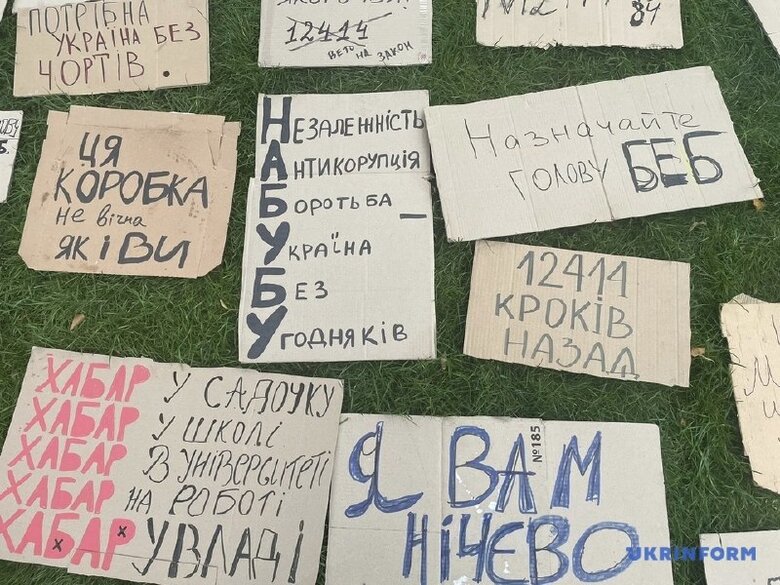 ПОТРІБНА
УКРАЇНА БЕЗ
ЧОРТІВ.
12414
ВЕТО НА ЗАКОН
84
ЦЯ
КОРОБКА
НЕ ВіЧНА
ЯК І ВИ
НЕЗАЛЕЖНІСТЬ
АНТИКОРУПЦІЯ
БОРОТЬБА _
УКРАЇНА
БЕЗ
УГОДНЯКІВ
Назначайте
ГОЛОВУ БЕБ
12414
КРОКІВ
НАЗАД
ХАБАР У САДОЧКУ
ХАБАР У ШКОЛІ
ХАБАР В УНІВЕРСИТЕТІ
ХАБАР НА РОБОТІ
ХАБАР У ВЛАДІ
Я ВАМ
НІЧЄВО
№185
UKRINFORM